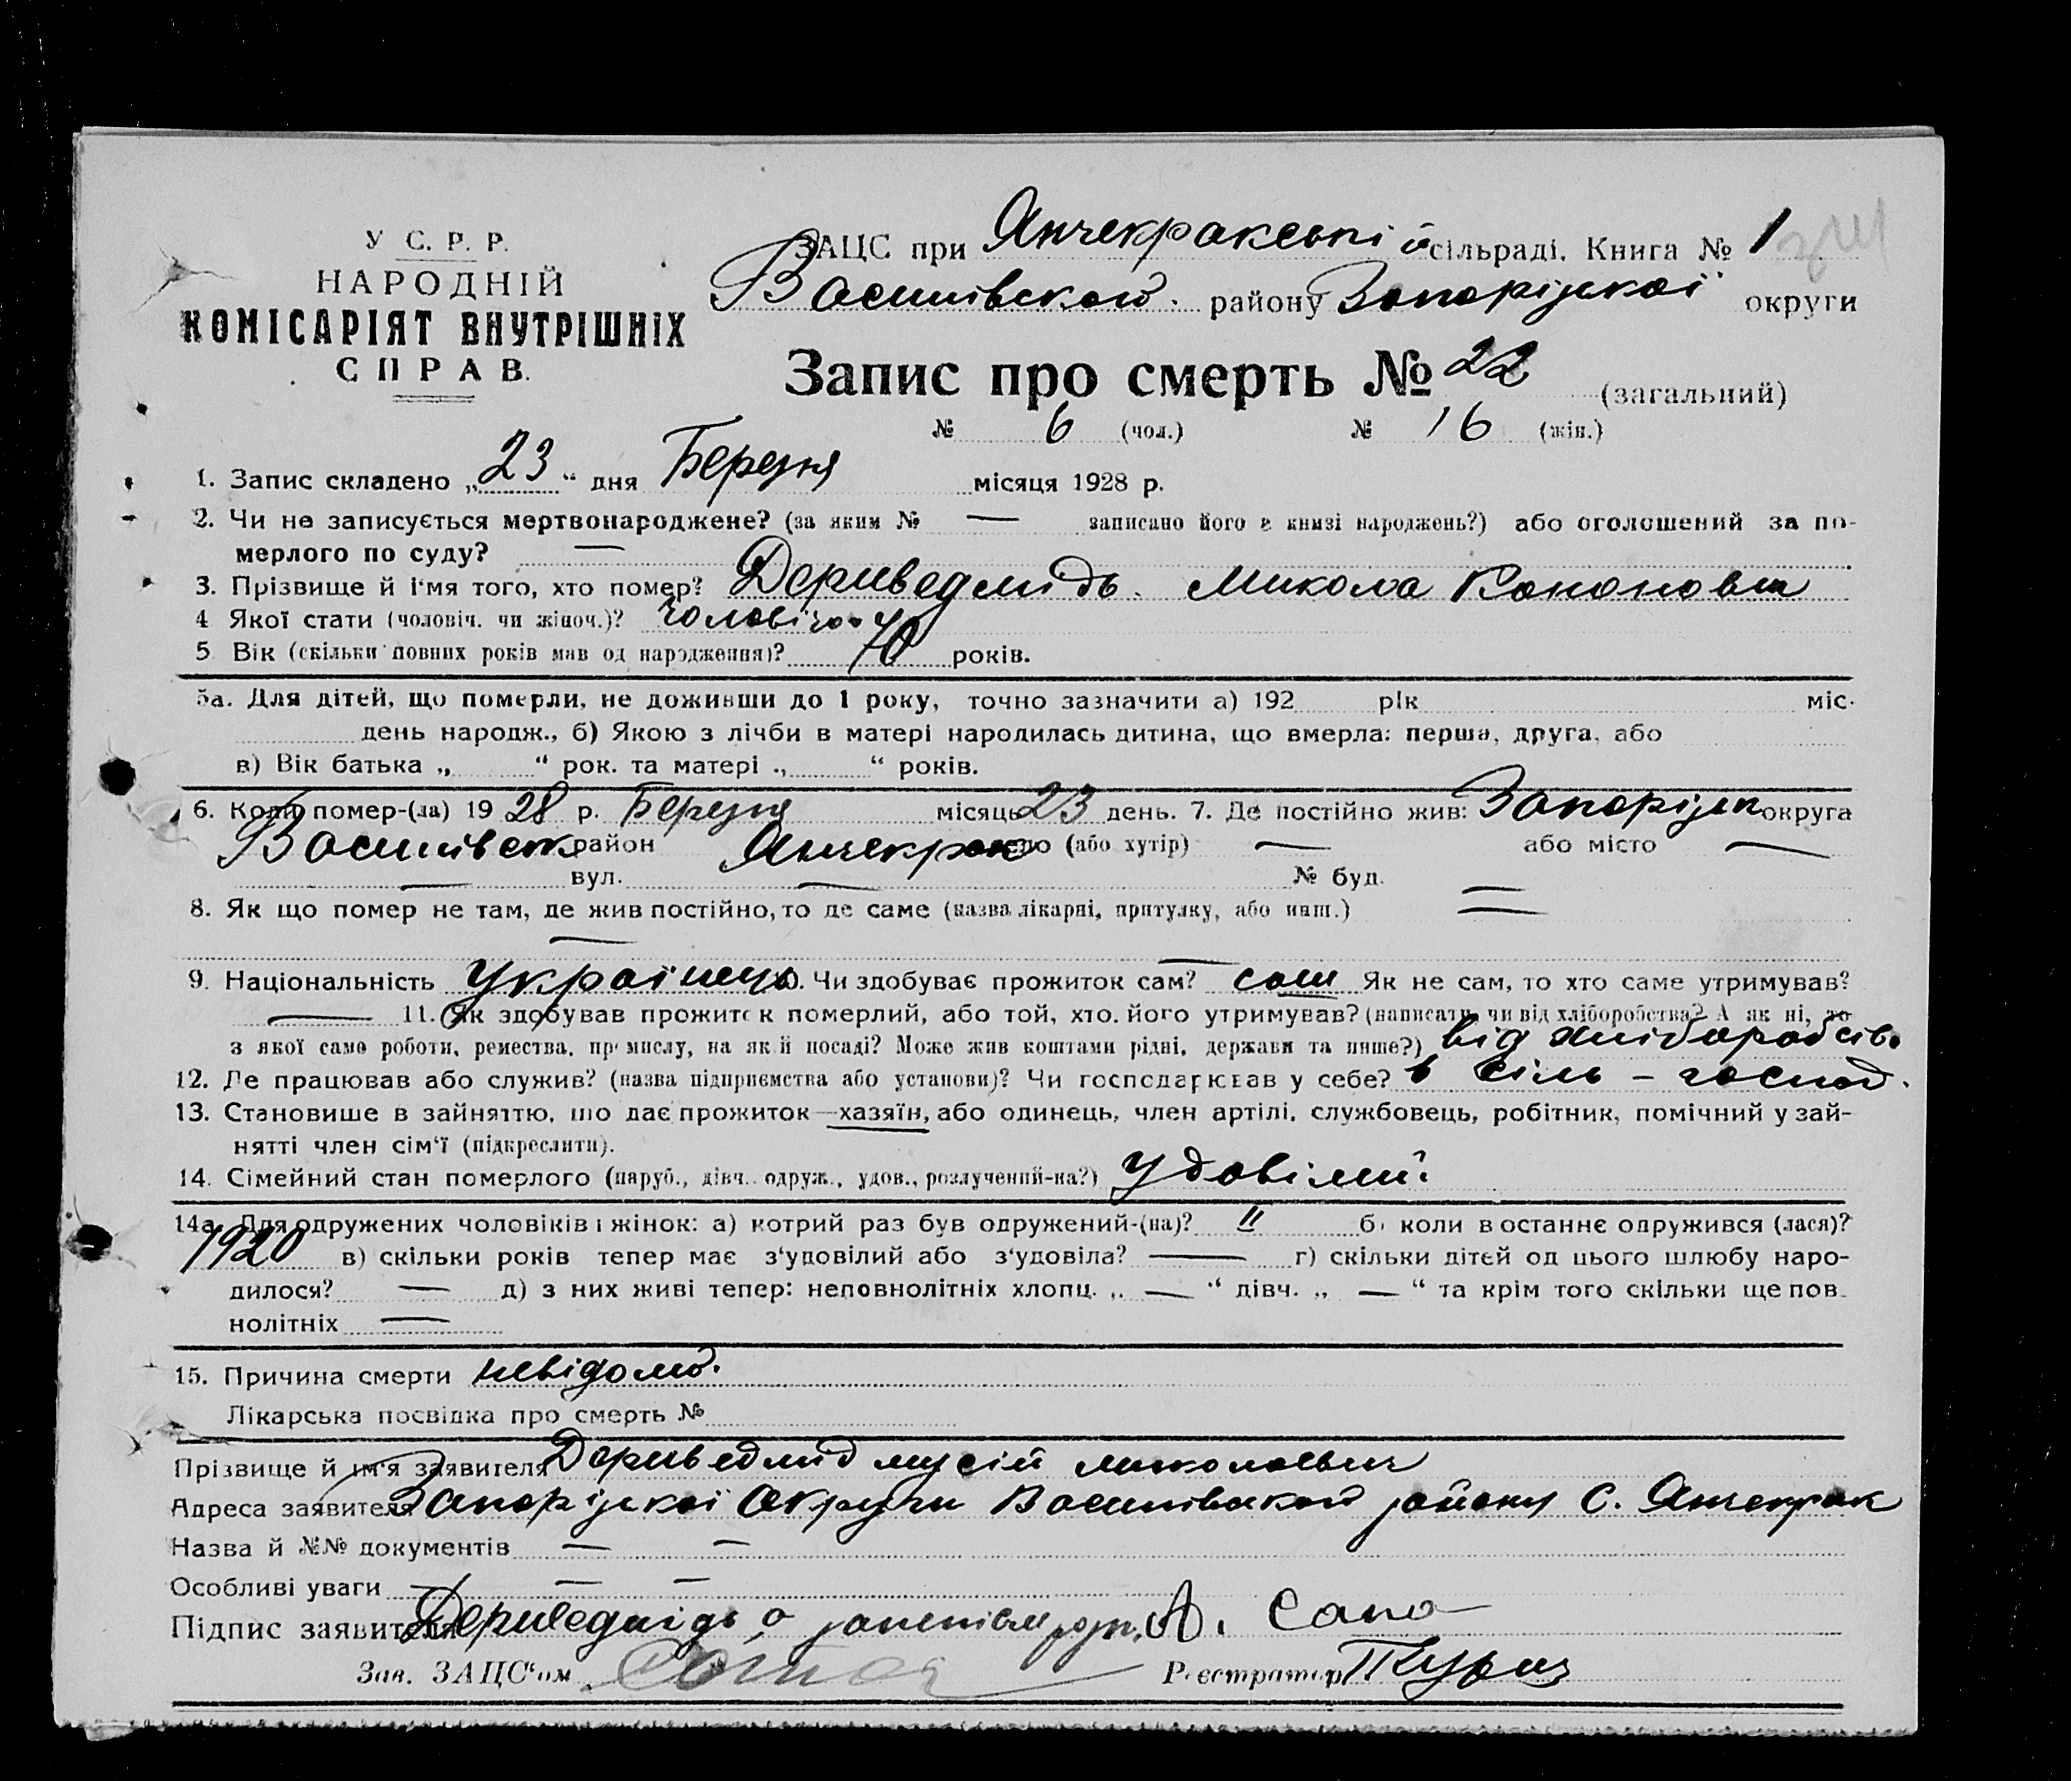 У С. Р. Р.
НАРОДНІЙ
КОМІСАРІЯТ ВНУТРІШНІХ
СПРАВ.
ЗАЦС при Янчекракській сільраді. Книга № 1
Василівской району Запоріжкої округи
Запис про смерть № 22 (загальний)
№ 6 (чол.) № 16 (жін.)
1. Запис складено „23“ дня Березня місяця 1928 р.
2. Чи не записується мертвонароджене? (за яким № — записано його в книзі народжень?) або оголошений за по-
мерлого по суду? —
3. Прізвище й і'мя того, хто помер? Дериведмідь Микола Кононович
4 Якої стати (чоловіч. чи жіноч.)? чоловічо
5 Вік (скільки повних років мав од народження)? 70 років.
5а. Для дітей, що померли, не доживши до 1 року, точно зазначити а) 192 рік міс.
день народж., б) Якою з лічби в матері народилась дитина, що вмерла: перша, друга, або
в) Вік батька „ “ рок. та матері „ “ років.
6. Коли помер-(ла) 1928 р. Березня місяць 23 день. 7. Де постійно жив: Запоріжк округа
Василівськ район Янчекрак село (або хутір) — або місто —
— вул. — № буд. —
8. Як що помер не там, де жив постійно, то де саме (назва лікарні, притулку, або инш.) —
—
9. Національність Українець 10. Чи здобуває прожиток сам? сам Як не сам, то хто саме утримував?
— 11. Як здобував прожиток померлий, або той, хто його утримував? (написати, чи від хліборобства? А як ні, то
з якої саме роботи, ремества, промислу, на якій посаді? Може жив коштами рідні, держави та инше?) від хліборобсів.
12. Де працював або служив? (назва підприємства або установи)? Чи господарював у себе? в сіль – господ.
13. Становише в зайняттю, що дає прожиток—хазяїн, або одинець, член артілі, службовець, робітник, помічний у зай-
нятті член сім'ї (підкреслити).
14. Сімейний стан померлого (паруб., дівч. одруж., удов., розлучений-на?) удовілий.
14а. Для одружених чоловіків і жінок: а) котрий раз був одружений-(на)? II б) коли востаннє одружився (лася)?
1920 в) скільки років тепер має з'удовілий або з'удовіла? — г) скільки дітей од цього шлюбу наро-
дилося? — д) з них живі тепер: неповнолітніх хлопц. „ — “ дівч. „ — “ та крім того скільки ще пов-
нолітніх —
15. Причина смерти невідомо.
Лікарська посвідка про смерть №
Прізвище й ім'я заявителя Дериведмід мусій миколаевич
Адреса заявителя Запоріжкої Округи Василівской району С. Янчекрак
Назва й №№ документів — —
Особливі уваги — — —
Підпис заявителя Дериведмідь а розп. А. Сапа
Зав. ЗАЦС'ом
Реєстратор